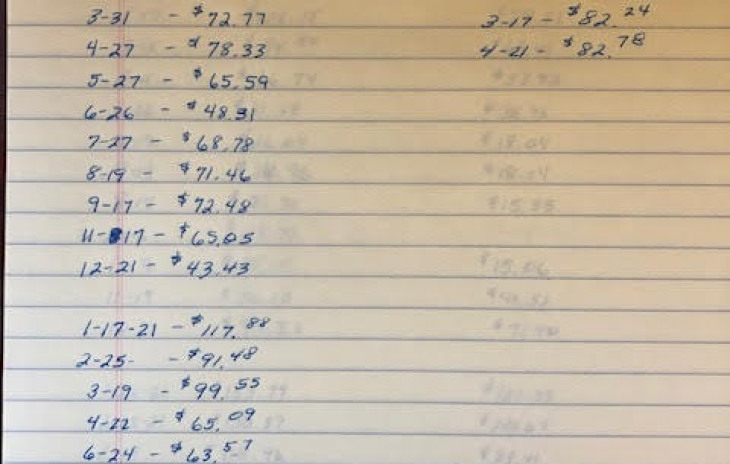 3-31 - $72.77
4-27 - $78.33
5-27 - $65.59
6-26 - $48.31
7-27 - $68.78
8-19 - $71.46
9-17 - $72.48
11-17 - $65.05
12-21 - $43.43
1-17-21 - $117.88
2-25- - $91.48
3-19 - $99.55
4-22 - $65.09
6-24 - $63.57
3-17 - $82.24
4-21 - $82.78